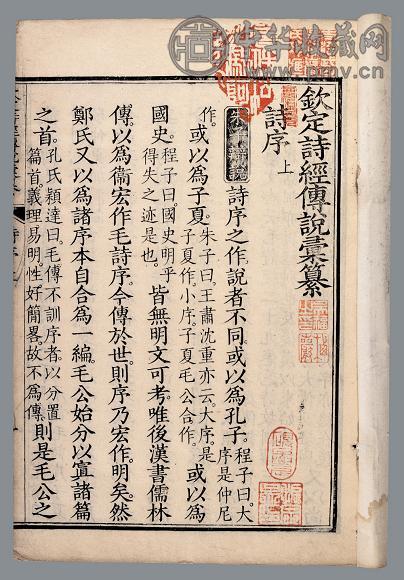 中华收藏网
欽定詩經傳說彙纂
詩序 上
朱子辨說 詩序之作說者不同。或以爲孔子。程子曰。大序是仲尼
作。或以爲子夏。朱子曰。王肅沈重亦云。大序。是子夏作。小序。子夏毛公合作。或以爲
國史。程子曰。國史明乎得失之迹是也。皆無明文可考。唯後漢書儒林
傳以爲衞宏作毛詩序。今傳於世。則序乃宏作明矣。然
鄭氏又以爲諸序本自合爲一編。毛公始分以寘諸篇
之首。孔氏穎達曰。毛傳不訓序者。以分置篇首。義理易明。性好簡畧。故不爲傳。則是毛公之